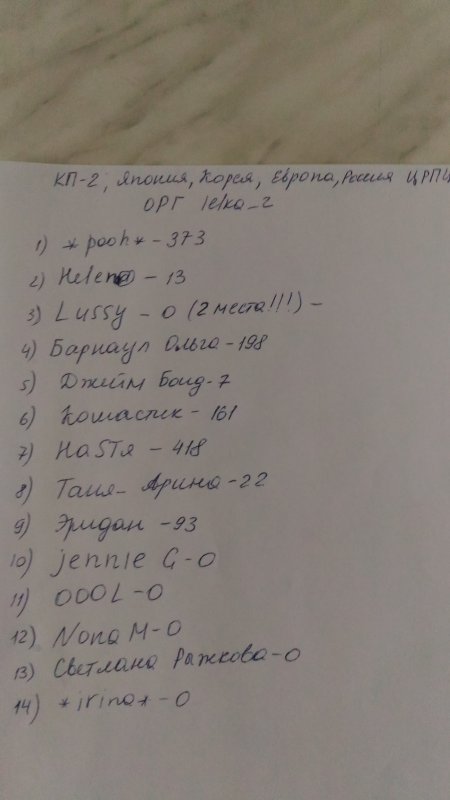 КП-2, Япония, Корея, Европа, Россия ЦРПЦ
ОРГ lelka_2
1) *pooh* - 373
2) Helen@ - 13
3) Lussy - 0 (2 места!!!) -
4) Барнаул Ольга - 198
5) Джейм Бонд - 7
6) Кошастик - 161
7) НаSTя - 418
8) Таня- Арина - 22
9) Эридан - 93
10) jennie G - 0
11) OOOL - 0
12) Nona M - 0
13) Светлана Рыжкова - 0
14) *irina* - 0